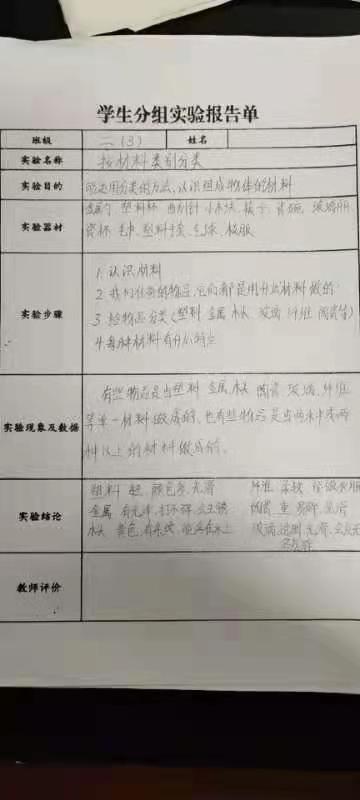 学生分组实验报告单
班级 二（3） 姓名
实验名称 按材料类别分类
实验目的 能运用分类的方法,认识组成物体的材料
实验器材 塑料杯 回形针 小木块 筷子 瓷碗 玻璃
瓷杯 毛巾 塑料 气球 校服
实验步骤
1.认识材料
2.我们准备的物品,它们都是用什么材料做的
3.给物品分类(塑料 金属 木头 玻璃 纤维 陶瓷等)
4.每种材料有什么特点
实验现象及数据
有些物品是由塑料 金属 木头 陶瓷 玻璃 纤维
等单一材料做成的,也有些物品是由两种或两
种以上的材料做成的。
实验结论
塑料 轻 颜色多 光滑 纤维 柔软 容易吸水
金属 有光泽 会生锈 陶瓷 重 易碎 光滑
木头 黄色 有条纹 能浮在水上 玻璃 透明 光滑
易碎
教师评价